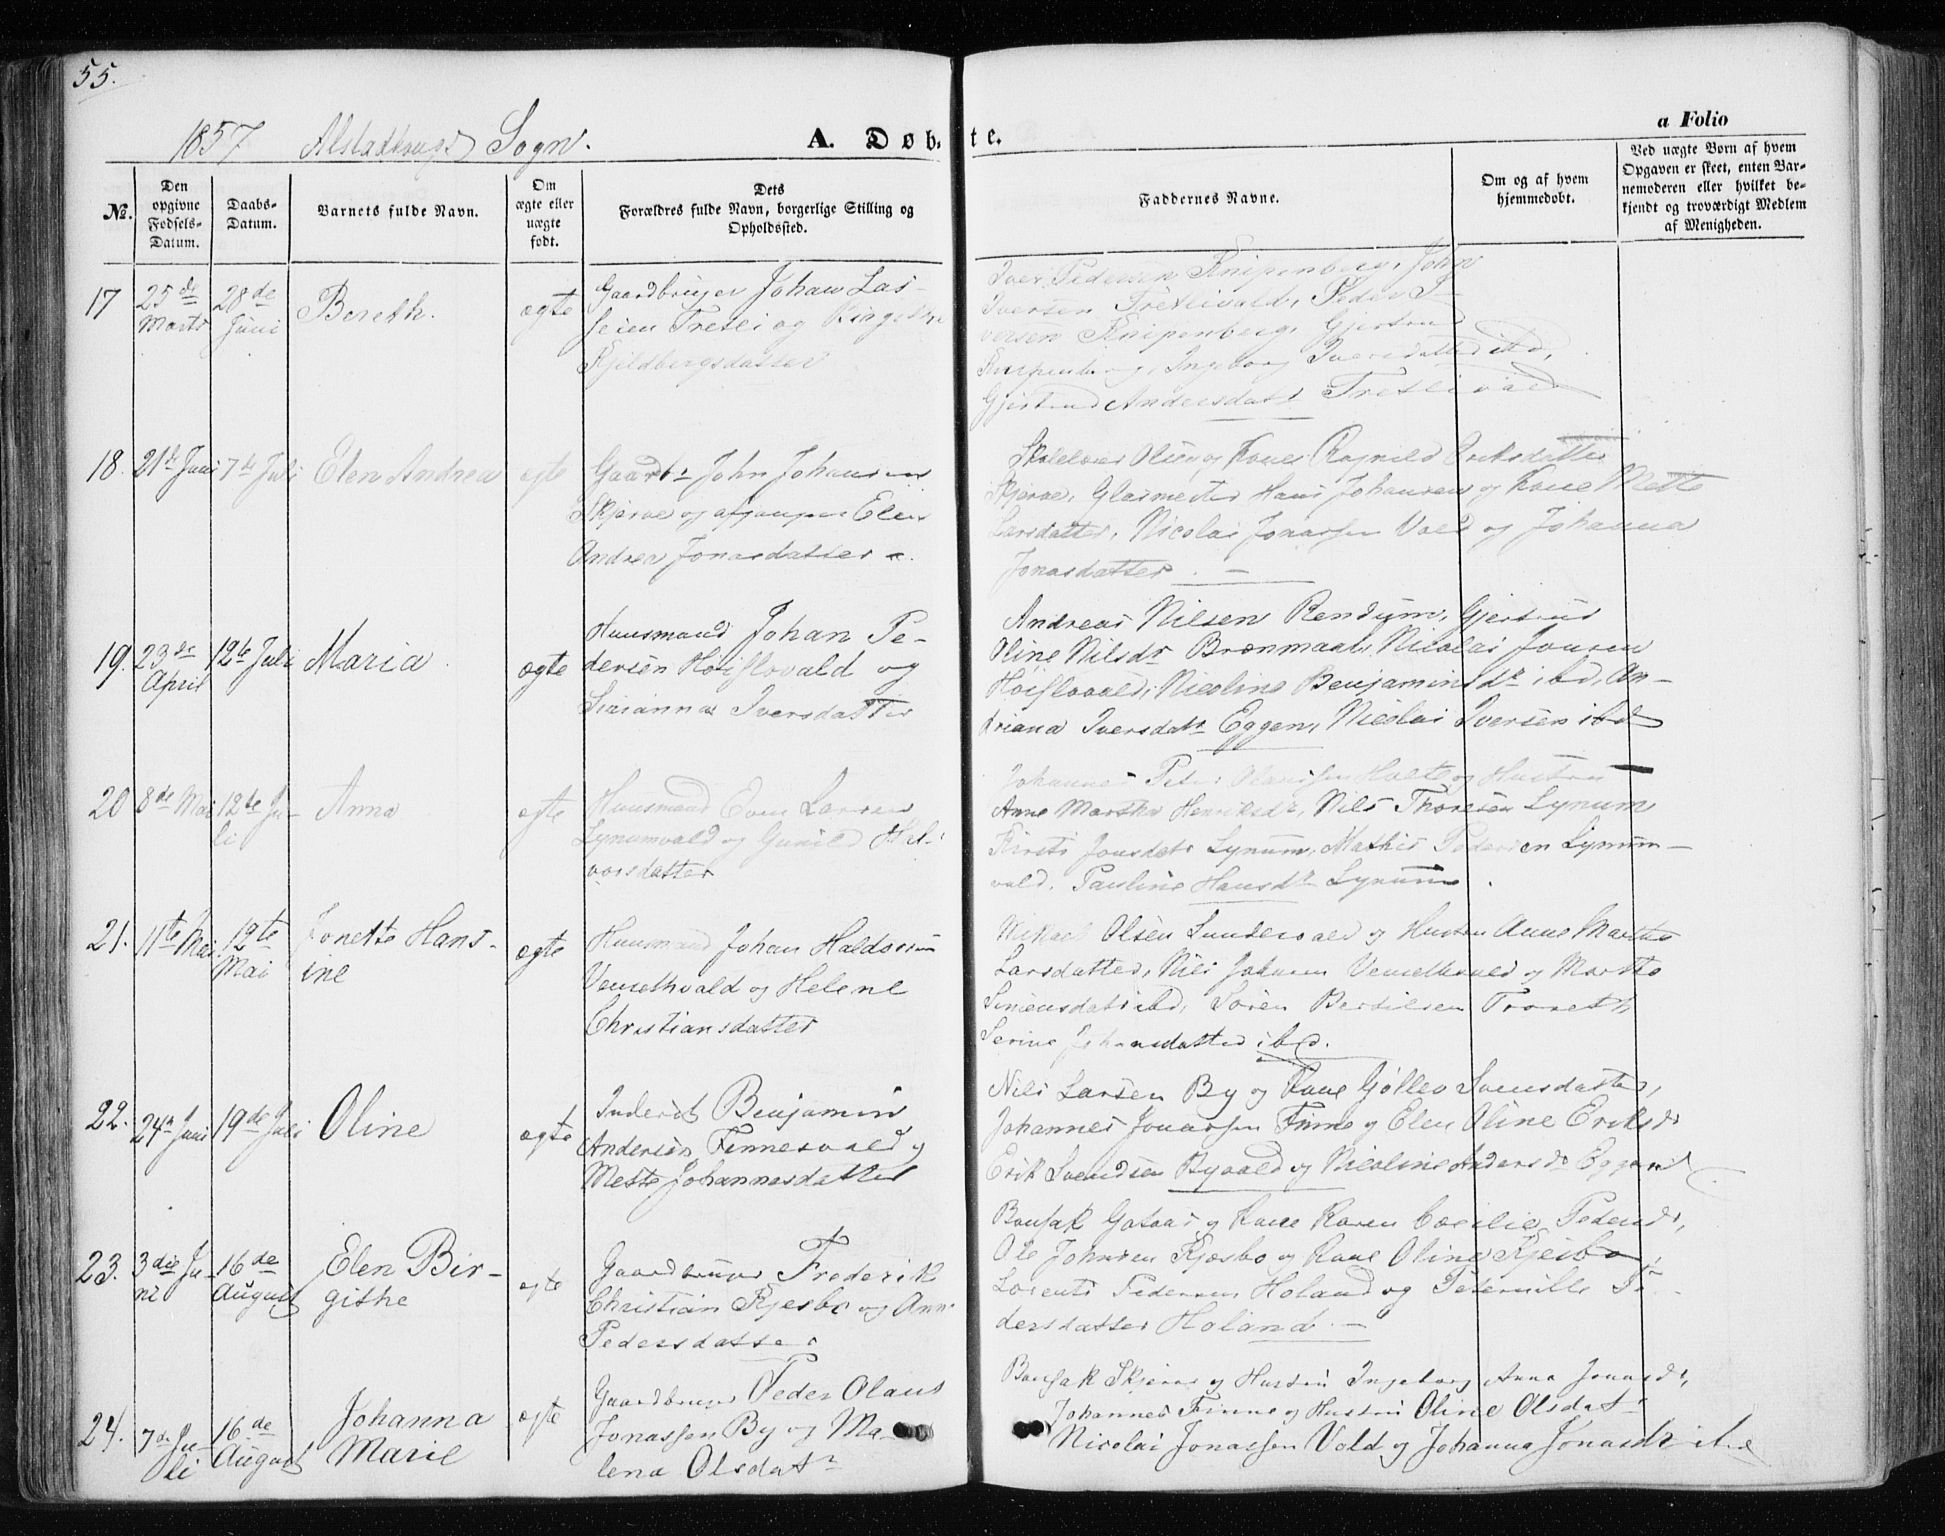 55.
1857 Alstadhougs Sogn.
A. Døbte.
a Folio
No.
Den opgivne Fødsels-Datum.
Daabs-Datum.
Barnets fulde Navn.
Om ægte eller uægte født.
Dets Forældres fulde Navn, borgerlige Stilling og Opholdssted.
Faddernes Navne.
Om og af hvem hjemmedøbt.
Ved uægte Børn af hvem Opgaven er skeet, enten Barnemoderen eller hvilket bekjendt og troværdigt Medlem af Menigheden.
17 25de Marts 28de Juni Bereth. ægte
Gaardbruger Johan Las-
sesen Tretli og
Kjeldbergsdatter
Iver Pedersen Knipenberg, John
Iversen Tretlivald, Peder I-
versen Knipenberg, Gjertrud
Knipenberg, Ingeborg Iversdatter ibd,
Gjertrud Andersdatr Tretlivald
18. 21de Juni 7de Juli Elen Andrea ægte
Gaardbr John Johansen
Skjerve og afgangne Elen
Andrea Jonasdatter
Skolelærer Olsen og Kone Ragnild Eriksdatter
Skjerve, Glasmester Hans Johansen og Kone Mette
Larsdatter, Nicolai Jonassen Vold og Johanna
Jonasdatter. —
19. 23de April 12te Juli Maria ægte
Huusmand Johan Pe-
dersen Høiflovald og
Sirianna Iversdatter
Andreas Nilsen Rendum, Gjertrud
Oline Nilsdr Brønmaal, Nicolai Jonsen
Høiflovald, Nicoline Benjaminsdr ibd, An-
driana Iversdatr Eggen, Nicolai Iversen ibd
20 8de Mai 12te Ju-
li Anna ægte
Huusmand Even Larsen
Lynumvald og Gunild Hal-
vorsdatter
Johannes Peter Olaussen Holte og Hustru
Anne Martha Henriksdr, Nils Thoresen Lynum
Kirsti Jonsdatr Lynum, Mathis Pedersen Lynum-
vald. Pauline Hansdr Lynum
21. 11te Mai 12te Mai Jonette Hans-
ine ægte
Huusmand Johan Haldorsen
Venethvald og Helene
Christiansdatter
Mikael Olsen Sundesvald og Hustru Anne Martha
Larsdatter, Nils Johnsen Venethvald og Martha
Simensdatr ibd, Søren Bertilsen Troneth,
Serine Johansdatter ibd.
22. 24de Juni 19de Juli Oline ægte
Inderst Benjamin
Andersen Finnesvald og
Mette Johannesdatter
Nils Larsen By og Kone Gøllev Svensdatter,
Johannes Jonassen Finne og Elen Oline Eriksdr
Erik Svendsen Byvald og Nicoline Andersdr Eggen
23. 3die Ju-
ni 16de August Elen Bir-
githe ægte
Gaardbruger Frederik
Christian Kjesbo og Anne
Pedersdatter
Bonfak og Kone Karen Cecilie Pedersdr,
Ole Johnsen Kjesbo og Kone Oline Kjesbo,
Lorents Pedersen Holand og Peternille Pe-
dersdatter Holand. —
24. 7de Ju-
li 16de August Johanna
Marie ægte
Gaardbruger Peder Olaus
Jonassen By og Ma-
lena Olsdatr
Bonfak Skjerve og Hustru Ingeborg Anna Jonasdr,
Johannes Finne og Hustru Oline Olsdatr
Nicolai Jonassen Vold og Johanna Jonasdr ibd